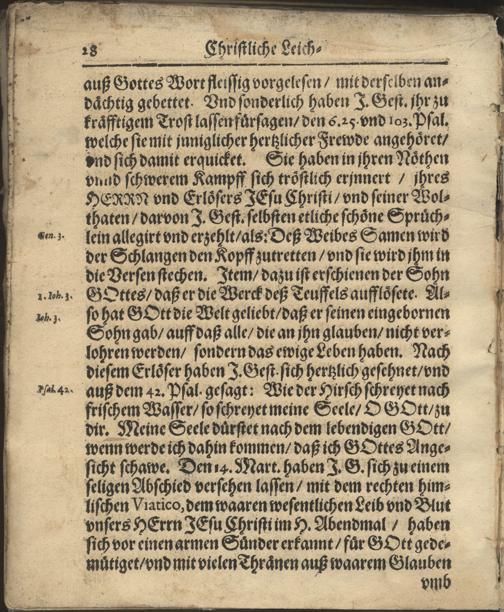 28 Christliche Leich-
auß Gottes Wort fleissig vorgelesen / mit derselben an-
dächtig gebettet. Vnd sonderlich haben J. Gest. jhr zu
kräfftigem Trost lassen fürsagen / den 6. 25. vnd 103. Psal.
welche sie mit jnniglicher hertzlicher Frewde angehöret /
vnd sich damit erquicket. Sie haben in jhren Nöthen
vnnd schwerem Kampff sich tröstlich erjnnert / jhres
HERRN vnd Erlösers JEsu Christi / vnd seiner Wol-
thaten / darvon J. Gest. selbsten etliche schöne Sprüch-
Gen. 3. lein allegirt vnd erzehlt / als: Deß Weibes Samen wird
der Schlangen den Kopff zutretten / vnd sie wird jhm in
die Versen stechen. Item / dazu ist erschienen der Sohn
1. Ioh. 3. GOttes / daß er die Werck deß Teuffels aufflösete. Al-
Ioh. 3. so hat GOtt die Welt geliebt / daß er seinen eingebornen
Sohn gab / auff daß alle / die an jhn glauben / nicht ver-
lohren werden / sondern das ewige Leben haben. Nach
diesem Erlöser haben J. Gest. sich hertzlich gesehnet / vnd
Psal. 42. auß dem 42. Psal. gesagt: Wie der Hirsch schreyet nach
frischem Wasser / so schreyet meine Seele / O GOtt / zu
dir. Meine Seele dürstet nach dem lebendigen GOtt /
wenn werde ich dahin kommen / daß ich GOttes Ange-
sicht schawe. Den 14. Mart. haben J. G. sich zu einem
seligen Abschied versehen lassen / mit dem rechten him-
lischen Viatico, dem waaren wesentlichen Leib vnd Blut
vnsers HErrn JEsu Christi im H. Abendmal / haben
sich vor einen armen Sünder erkannt / für GOtt gede-
mütiget / vnd mit vielen Thränen auß waarem Glauben
vmb